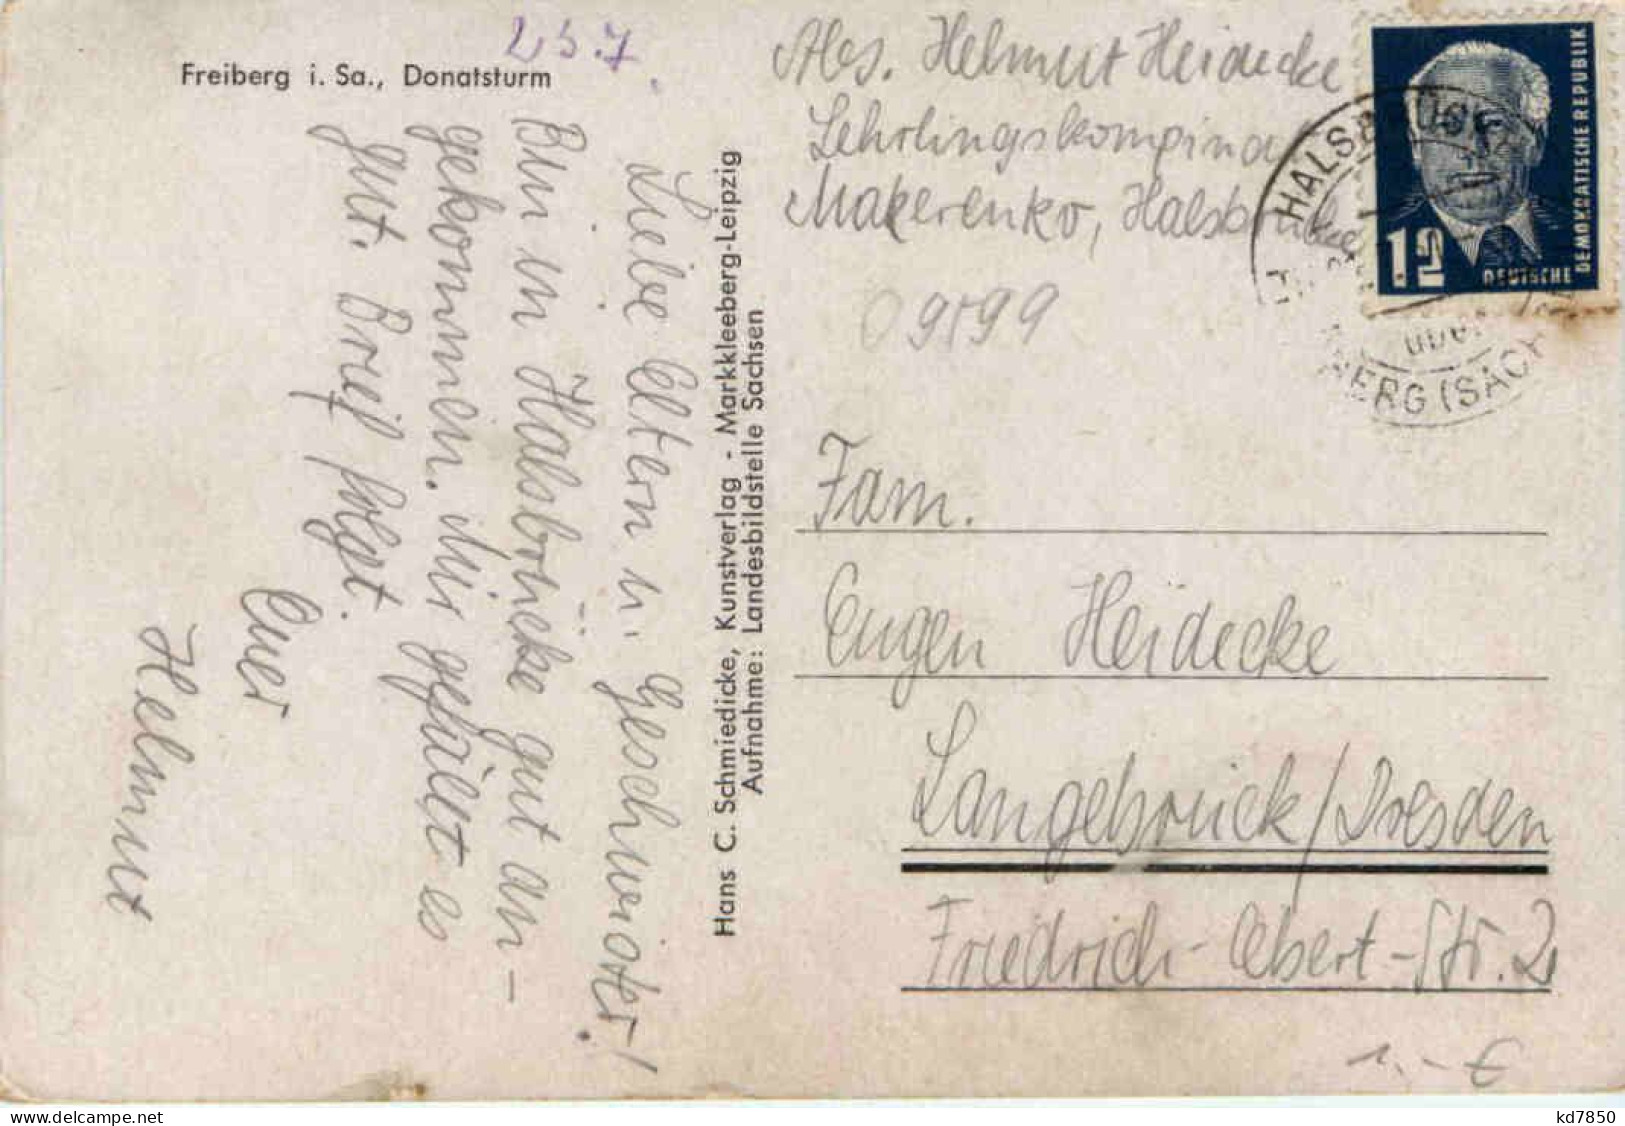 Freiberg i. Sa., Donatsturm
25.7.
Liebe Eltern u. Geschwister!
Bin in Halsbrücke gut an-
gekommen. Mir gefällt es
gut. Brief folgt.
Euer
Helmut
Hans C. Schmiedicke, Kunstverlag - Markkleeberg-Leipzig
Aufnahme: Landesbildstelle Sachsen
Abs. Helmut Heidecke
Lehrlingskompinat
Makerenko, Halsbrücke
09599
12
DEUTSCHE
DEMOKRATISCHE REPUBLIK
HALSBRÜCKE
über
FREIBERG (SACHS)
Fam.
Eugen Heidecke
Langebrück/Dresden
Friedrich-Ebert-Str. 2
1,- €
delcampe.net
kd7850